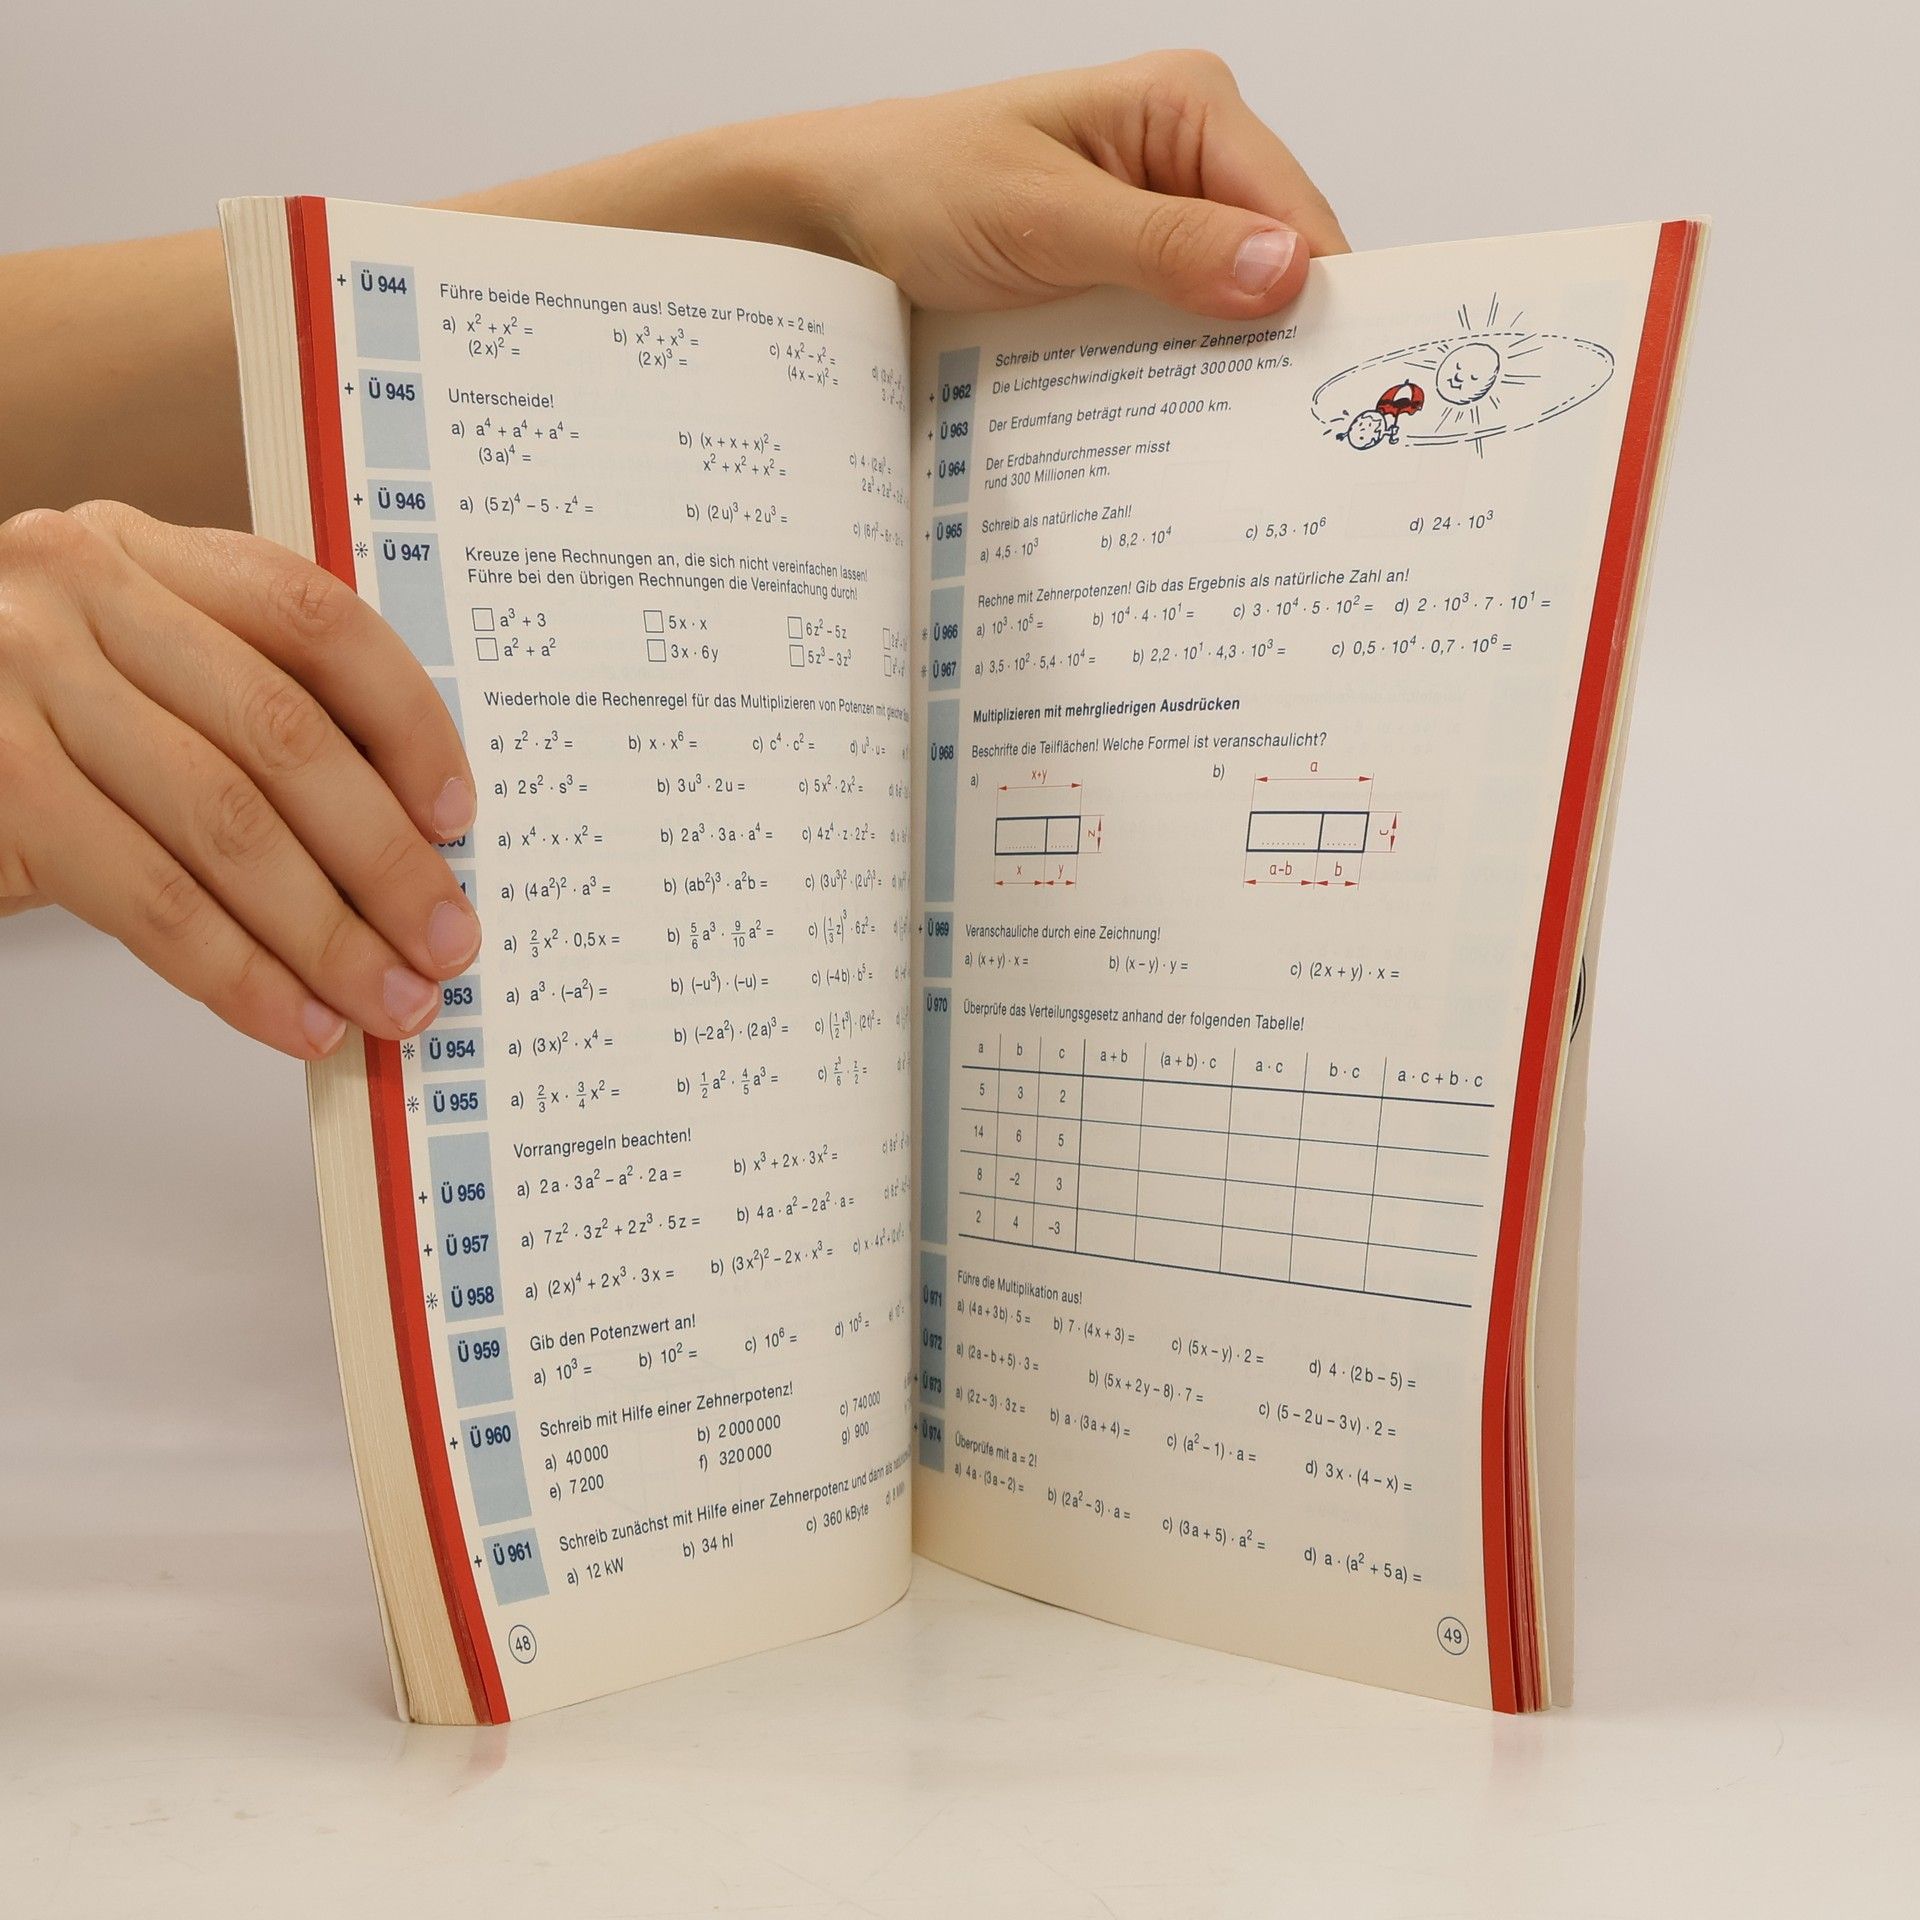 + Ü 944
Führe beide Rechnungen aus! Setze zur Probe x = 2 ein!
a) x² + x² = b) x³ + x³ = c) 4x² – x² =
(2x)² = (2x)³ = (4x – x)² =
+ Ü 945
Unterscheide!
a) a⁴ + a⁴ + a⁴ = b) (x + x + x)² = c) 4 · (2a)³ =
(3a)⁴ = x² + x² + x² =
+ Ü 946 a) (5z)⁴ – 5 · z⁴ = b) (2u)³ + 2u³ =
* Ü 947
Kreuze jene Rechnungen an, die sich nicht vereinfachen lassen!
Führe bei den übrigen Rechnungen die Vereinfachung durch!
☐ a³ + 3 ☐ 5x · x ☐ 6z² – 5z
☐ a² + a² ☐ 3x · 6y ☐ 5z³ – 3z³
Wiederhole die Rechenregel für das Multiplizieren von Potenzen mit
a) z² · z³ = b) x · x⁶ = c) c⁴ · c² = d) u³ · u =
a) 2s² · s³ = b) 3u³ · 2u = c) 5x² · 2x² =
a) x⁴ · x · x² = b) 2a³ · 3a · a⁴ = c) 4z⁴ · z · 2z² =
a) (4a²)² · a³ = b) (ab²)³ · a²b = c) (3u³)² · (2u²)³ =
a) 2/3 x² · 0,5x = b) 5/6 a³ · 9/10 a² = c) (1/3 z)³ · 6z² =
953 a) a³ · (–a²) = b) (–u³) · (–u) = c) (–4b) · b⁵ =
* Ü 954 a) (3x)² · x⁴ = b) (–2a²) · (2a)³ = c) (1/2 t³) · (2t)² =
* Ü 955 a) 2/3 x · 3/4 x² = b) 1/2 a² · 4/5 a³ = c) z³/6 · z/2 =
Vorrangregeln beachten!
+ Ü 956 a) 2a · 3a² – a² · 2a = b) x³ + 2x · 3x² =
+ Ü 957 a) 7z² · 3z² + 2z³ · 5z = b) 4a · a² – 2a² · a =
* Ü 958 a) (2x)⁴ + 2x³ · 3x = b) (3x²)² – 2x · x³ =
Ü 959
Gib den Potenzwert an!
a) 10³ = b) 10² = c) 10⁶ = d) 10⁵ =
+ Ü 960
Schreib mit Hilfe einer Zehnerpotenz!
a) 40 000 b) 2 000 000 c) 740 000
e) 7 200 f) 320 000 g) 900
+ Ü 961
Schreib zunächst mit Hilfe einer Zehnerpotenz und dann als
a) 12 kW b) 34 hl c) 360 kByte
48
Schreib unter Verwendung einer Zehnerpotenz!
+ Ü 962 Die Lichtgeschwindigkeit beträgt 300 000 km/s.
+ Ü 963 Der Erdumfang beträgt rund 40 000 km.
+ Ü 964 Der Erdbahndurchmesser misst
rund 300 Millionen km.
+ Ü 965 Schreib als natürliche Zahl!
a) 4,5 · 10³ b) 8,2 · 10⁴ c) 5,3 · 10⁶ d) 24 · 10³
Rechne mit Zehnerpotenzen! Gib das Ergebnis als natürliche Zahl an!
* Ü 966 a) 10³ · 10⁵ = b) 10⁴ · 4 · 10¹ = c) 3 · 10⁴ · 5 · 10² = d) 2 · 10³ · 7 · 10¹ =
* Ü 967 a) 3,5 · 10² · 5,4 · 10⁴ = b) 2,2 · 10¹ · 4,3 · 10³ = c) 0,5 · 10⁴ · 0,7 · 10⁶ =
Multiplizieren mit mehrgliedrigen Ausdrücken
Ü 968 Beschrifte die Teilflächen! Welche Formel ist veranschaulicht?
a) x+y b) a
z c
x y a–b b
+ Ü 969 Veranschauliche durch eine Zeichnung!
a) (x + y) · x = b) (x – y) · y = c) (2x + y) · x =
Ü 970 Überprüfe das Verteilungsgesetz anhand der folgenden Tabelle!
a b c a + b (a + b) · c a · c b · c a · c + b · c
5 3 2
14 6 5
8 –2 3
2 4 –3
Führe die Multiplikation aus!
Ü 971 a) (4a + 3b) · 5 = b) 7 · (4x + 3) = c) (5x – y) · 2 = d) 4 · (2b – 5) =
Ü 972 a) (2a – b + 5) · 3 = b) (5x + 2y – 8) · 7 = c) (5 – 2u – 3v) · 2 =
+ Ü 973 a) (2z – 3) · 3z = b) a · (3a + 4) = c) (a² – 1) · a = d) 3x · (4 – x) =
+ Ü 974 Überprüfe mit a = 2!
a) 4a · (3a – 2) = b) (2a² – 3) · a = c) (3a + 5) · a² = d) a · (a² + 5a) =
49